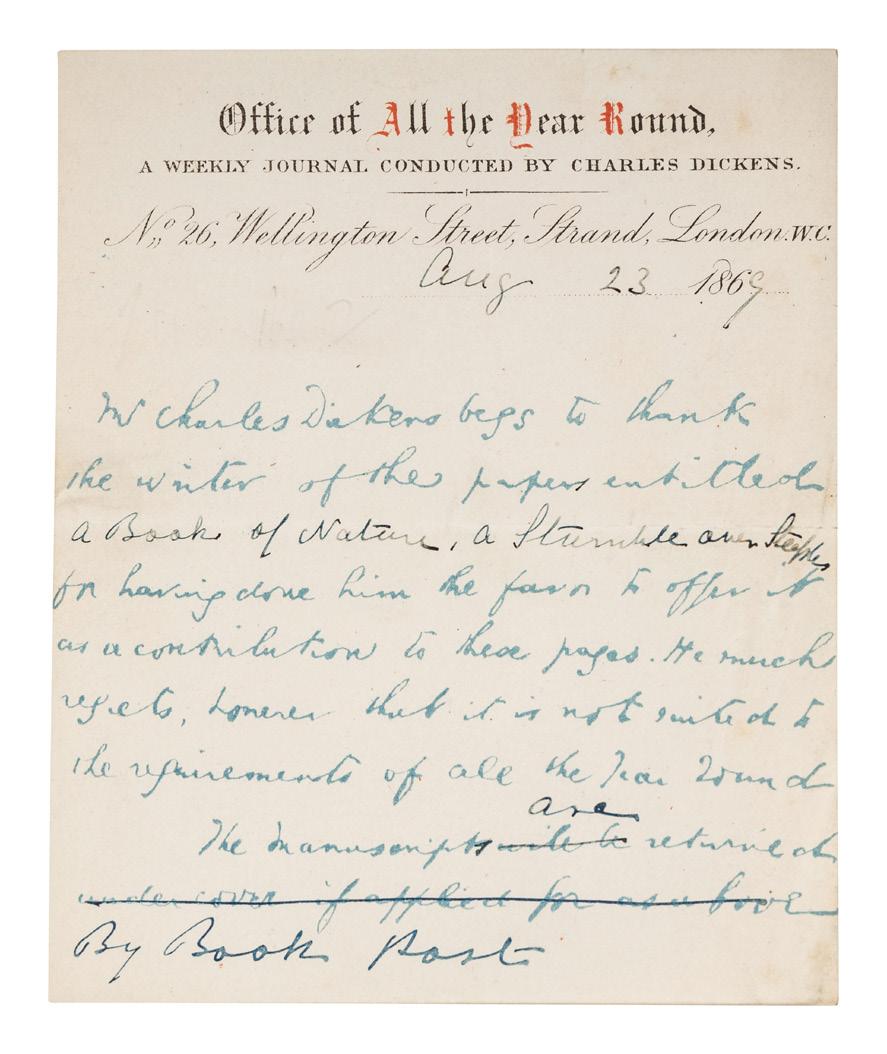 Office of All the Year Round,
A WEEKLY JOURNAL CONDUCTED BY CHARLES DICKENS.
No. 26, Wellington Street, Strand, London. W.C.
Aug 23 1869
Mr Charles Dickens begs to thank
the writer of the papers entitled
a Book of Nature, a Stumble over Steeples
for having done him the favor to offer it
as a contribution to these pages. He much
regrets, however that it is not suited to
the requirements of All the Year Round
are
The Manuscripts will be returned
under cover if applied for as above
By Book Post